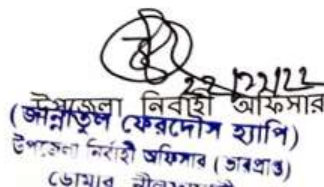 ২২/১২/২২
উপজেলা নির্বাহী অফিসার
(জান্নাতুল ফেরদৌস হ্যাপি)
উপজেলা নির্বাহী অফিসার (ভারপ্রাপ্ত)
ডোমার নীলফামারী